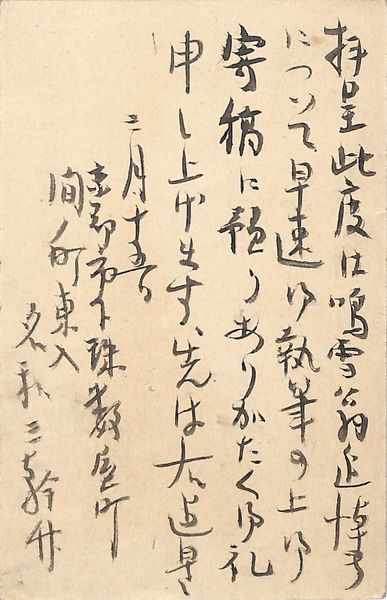 拝呈此度は鳴雪翁追悼号
について早速御執筆の上御
寄稿に預りありがたく御礼
申し上げます、先は右迄早々
三月十五日
京都市下珠数屋町
間ノ町東入
名和三幹竹